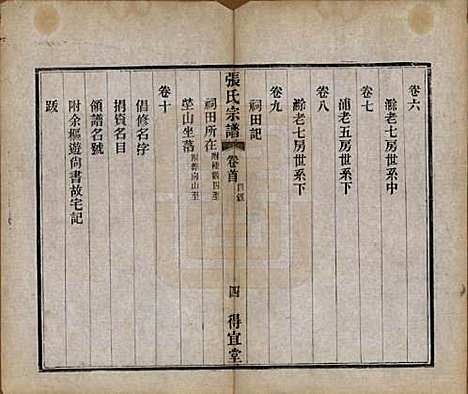 卷六
滁老七房世系中
卷七
浦老五房世系下
卷八
滁老七房世系下
卷九
祠田記
張氏宗譜
卷首
目錄
四
得宜堂
祠田所在
塋山坐落
卷十
倡修名字
捐貲名目
領譜名號
附余樞遊尙書故宅記
跋